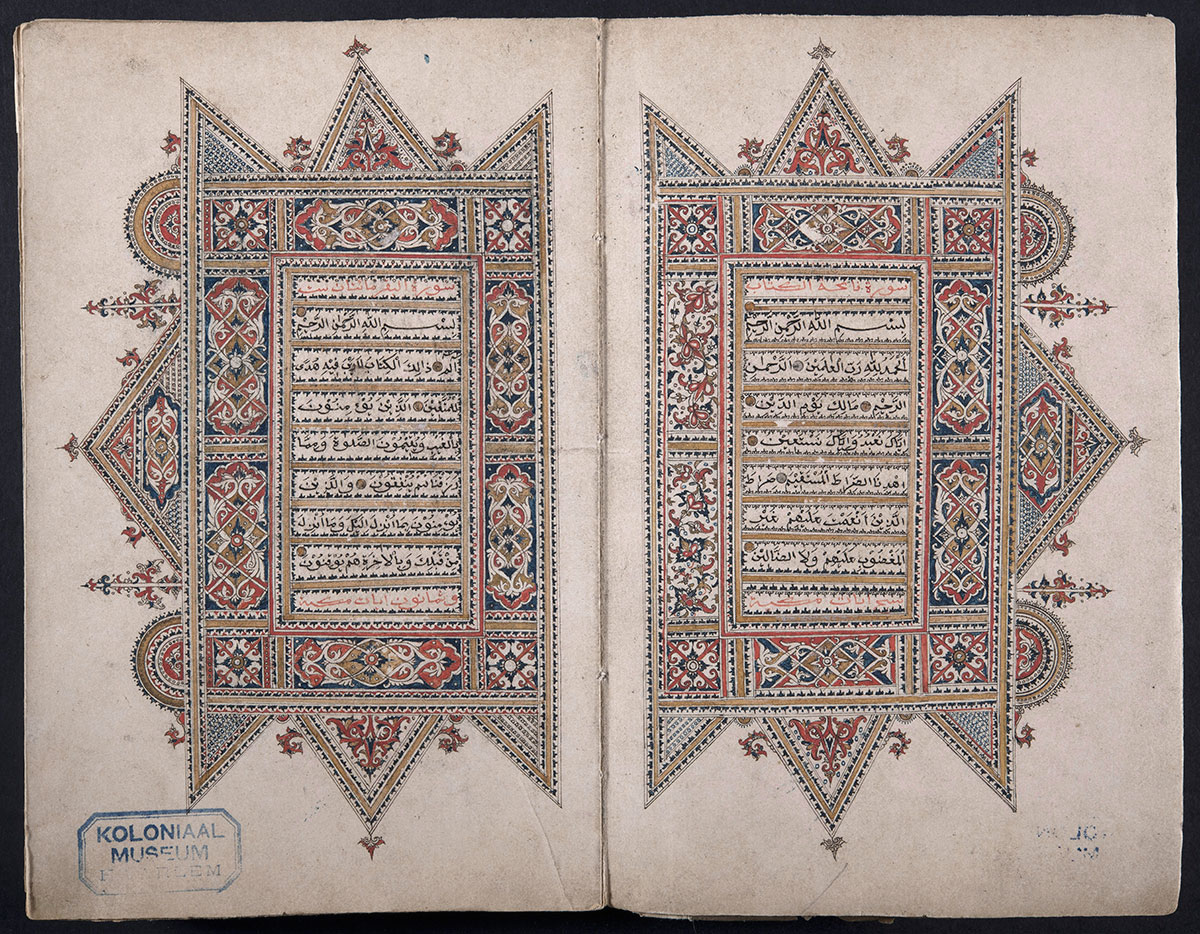 سورة فاتحة الكتاب
بسم الله الرحمن الرحيم
الحمد لله رب العالمين الرحمن
الرحيم مالك يوم الدين
اياك نعبد واياك نستعين
اهدنا الصراط المستقيم صراط
الذين انعمت عليهم غير
المغضوب عليهم ولا الضالين
ايات مكية
سورة البقرة مائتان ست
بسم الله الرحمن الرحيم
الم ذالك الكتاب لاريب فيه هدى
للمتقين الذين يؤمنون
بالغيب ويقيمون الصلوة ومما
رزقناهم ينفقون والذين
يؤمنون بما انزل اليك وما انزل
من قبلك وبالاخرة هم يوقنون
وثمانون ايات مكية
KOLONIAAL
MUSEUM
HAARLEM